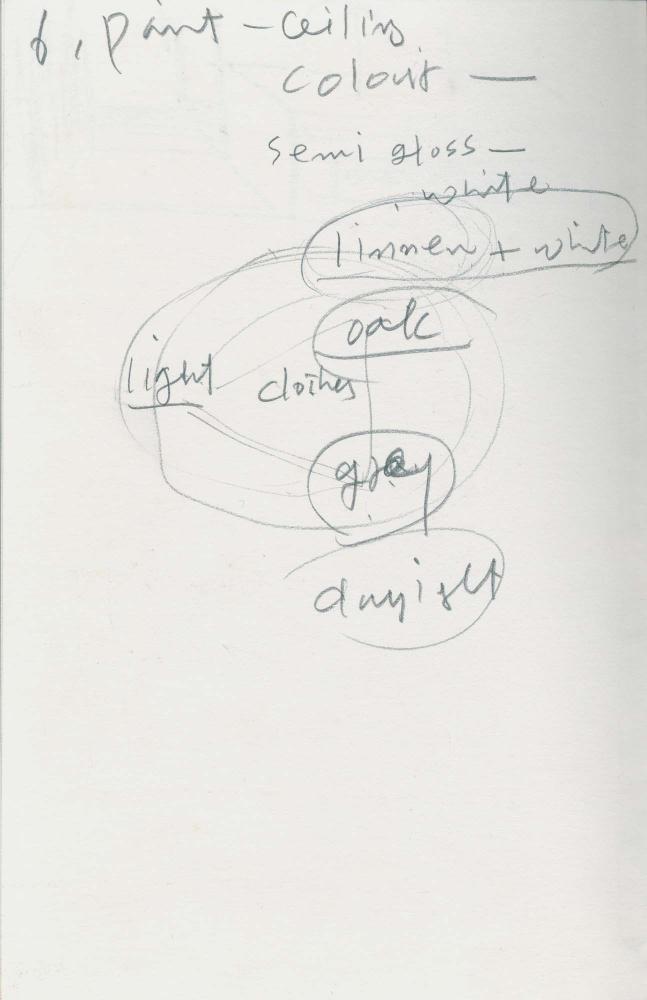 6, paint - ceiling
colour —
semi gloss —
white
linnen + white
oak
light
clothes
grey